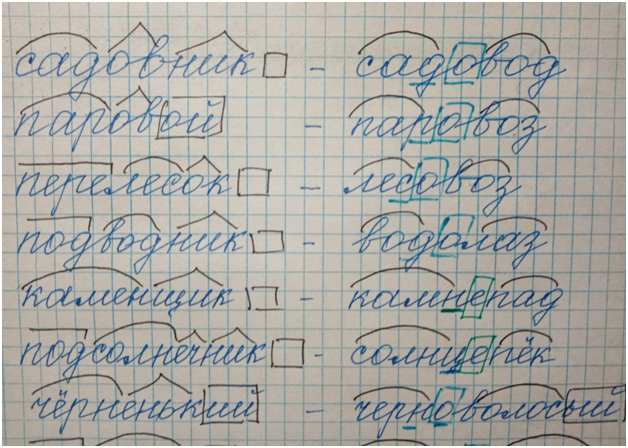 садовник - садовод
паровой - паровоз
перелесок - лесовоз
подводник - водолаз
каменщик - камнепад
подсолнечник - солнцепёк
чёрненький - черноволосый